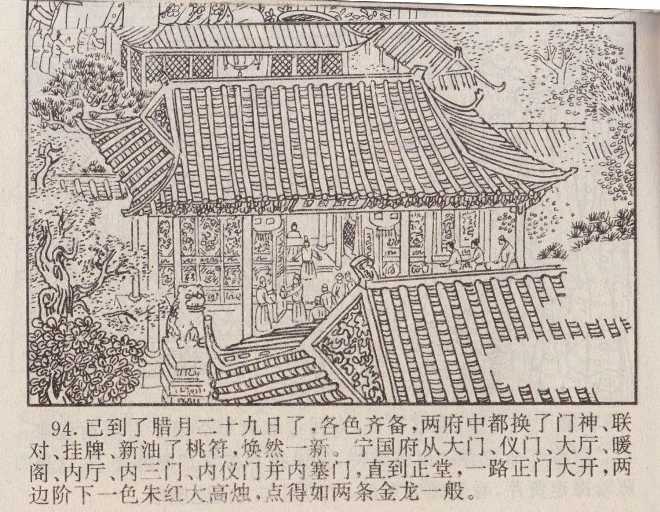 94. 已到了腊月二十九日了,各色齐备,两府中都换了门神、联
对、挂牌、新油了桃符,焕然一新。宁国府从大门、仪门、大厅、暖
阁、内厅、内三门、内仪门并内塞门,直到正堂,一路正门大开,两
边阶下一色朱红大高烛,点得如两条金龙一般。